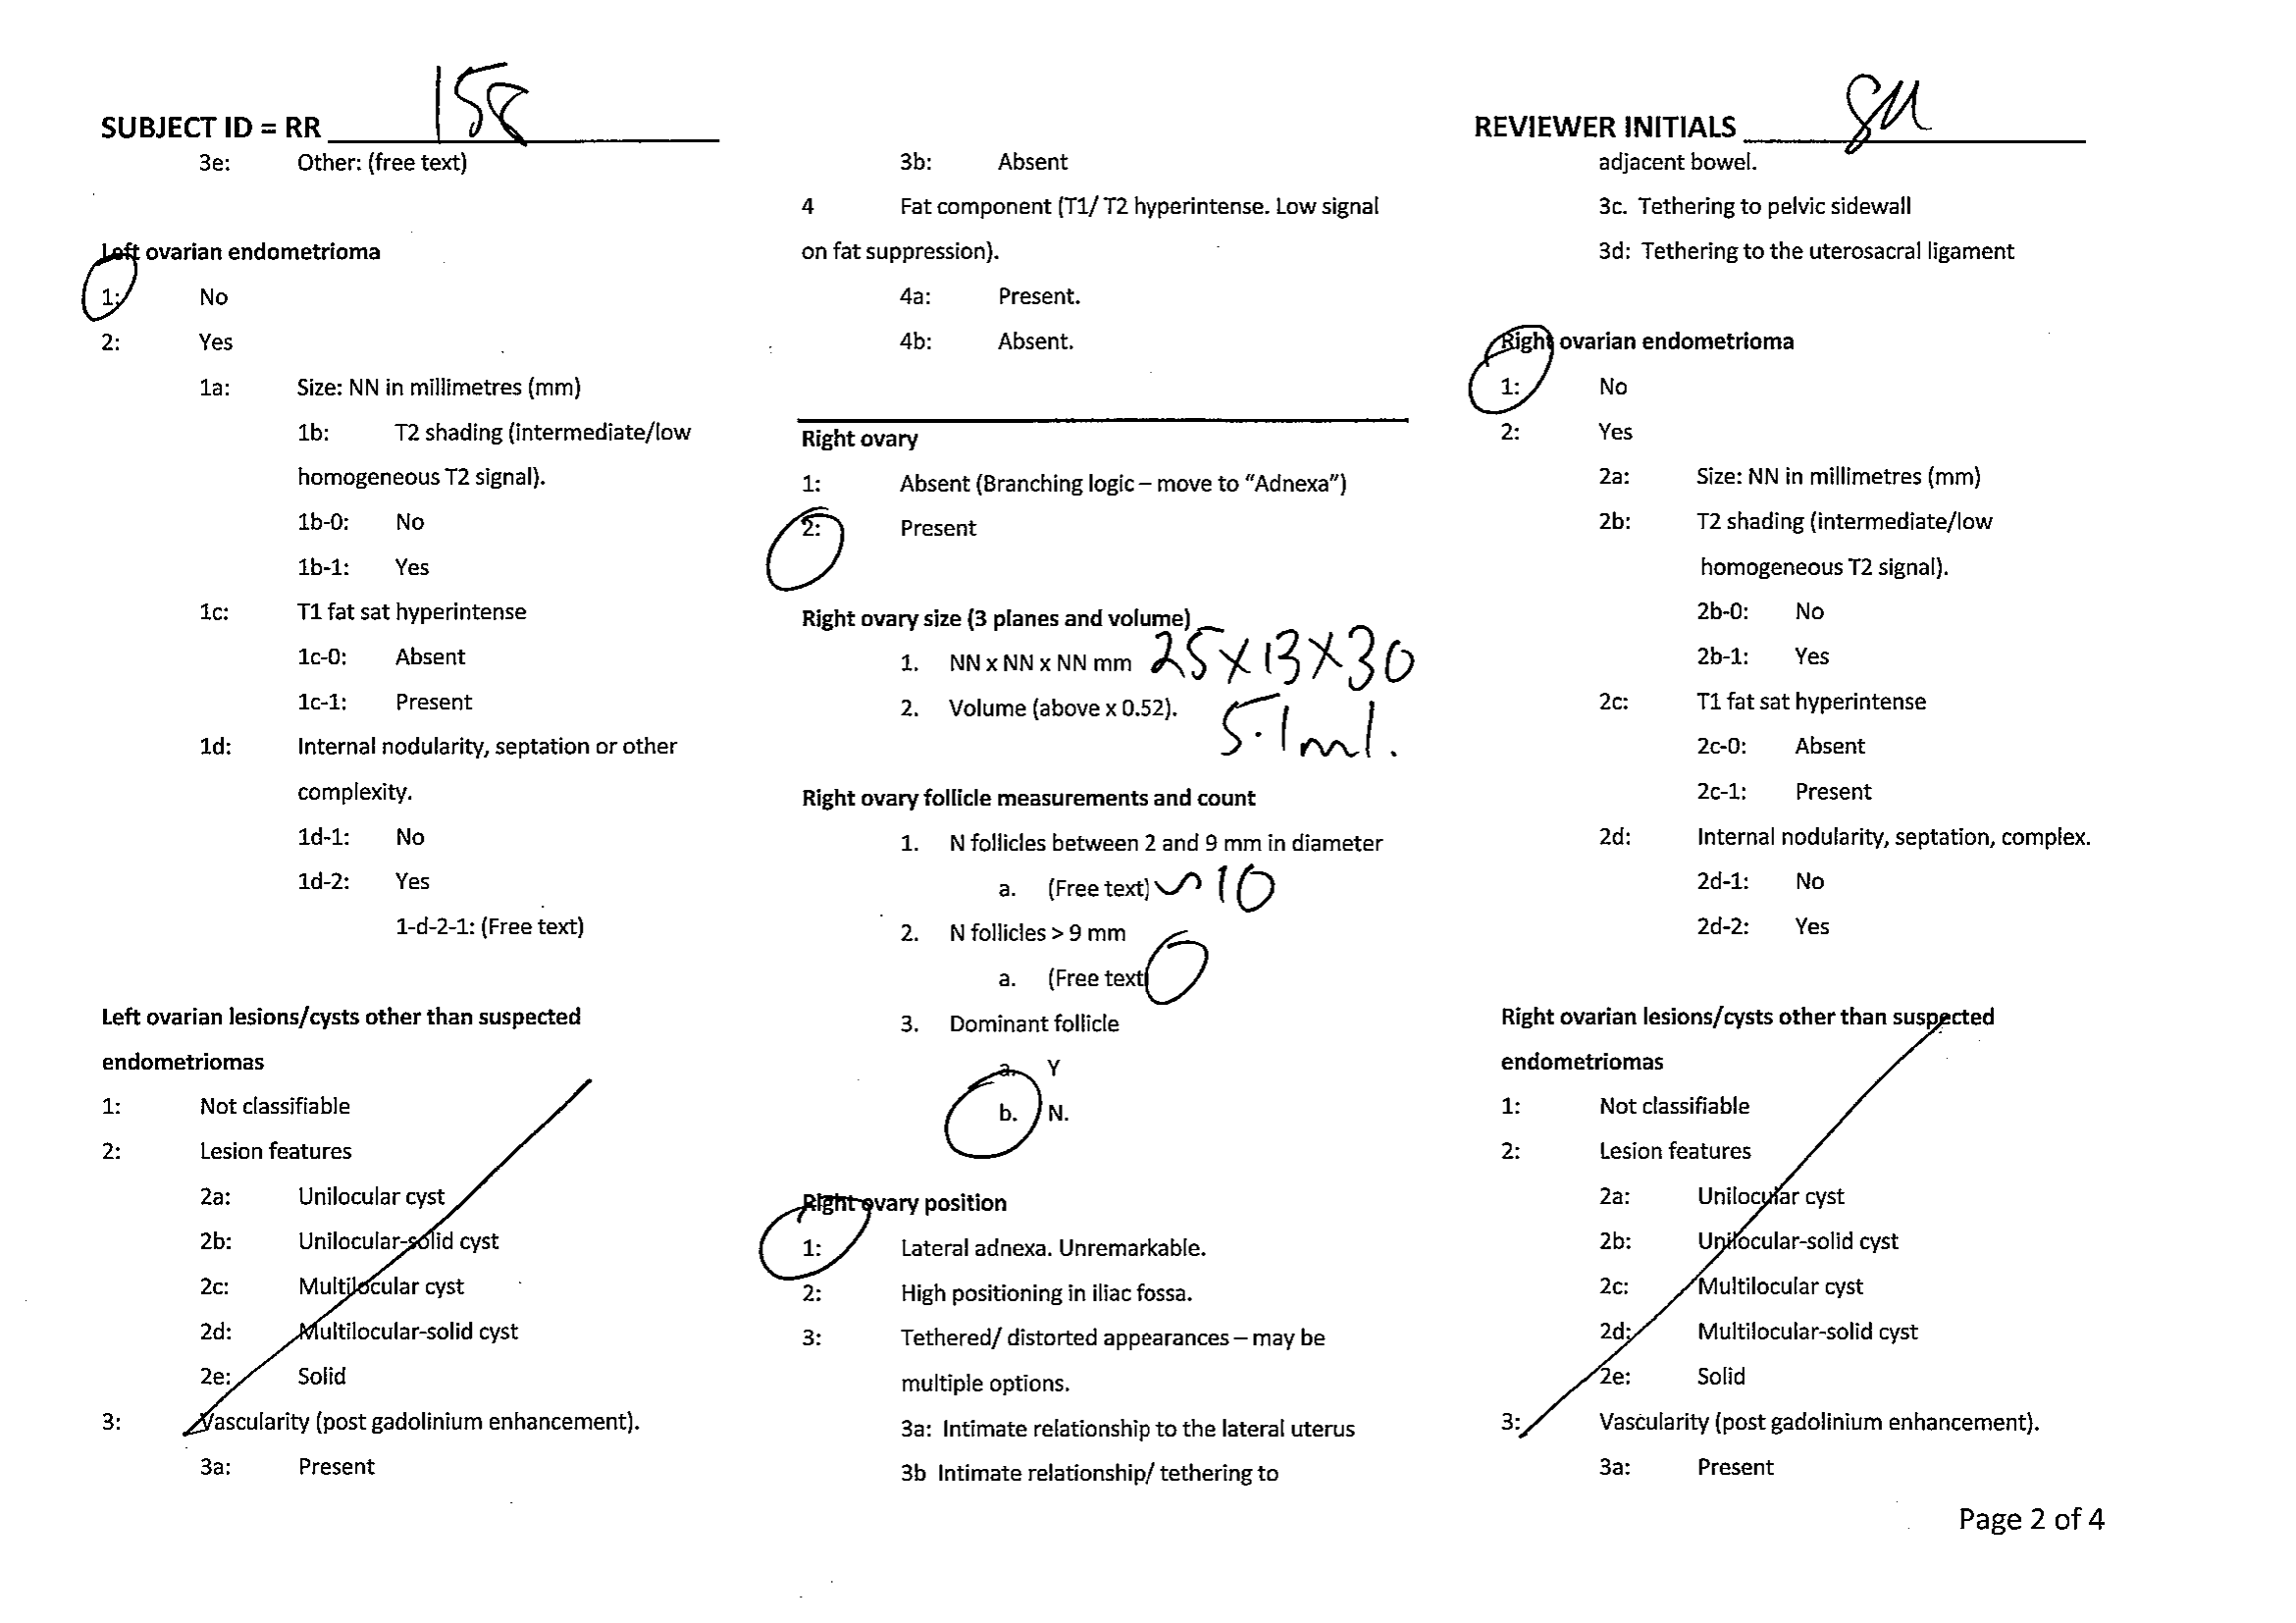 SUBJECT ID = RR 158
REVIEWER INITIALS SM
3e: Other: (free text)
Left ovarian endometrioma
1: No
2: Yes
1a: Size: NN in millimetres (mm)
1b: T2 shading (intermediate/low
homogeneous T2 signal).
1b-0: No
1b-1: Yes
1c: T1 fat sat hyperintense
1c-0: Absent
1c-1: Present
1d: Internal nodularity, septation or other
complexity.
1d-1: No
1d-2: Yes
1-d-2-1: (Free text)
Left ovarian lesions/cysts other than suspected
endometriomas
1: Not classifiable
2: Lesion features
2a: Unilocular cyst
2b: Unilocular-solid cyst
2c: Multilocular cyst
2d: Multilocular-solid cyst
2e: Solid
3: Vascularity (post gadolinium enhancement).
3a: Present
3b: Absent
4 Fat component (T1/ T2 hyperintense. Low signal
on fat suppression).
4a: Present.
4b: Absent.
Right ovary
1: Absent (Branching logic – move to “Adnexa”)
2: Present
Right ovary size (3 planes and volume)
1. NN x NN x NN mm 25 X 13 X 30
2. Volume (above x 0.52). 5.1ml.
Right ovary follicle measurements and count
1. N follicles between 2 and 9 mm in diameter
a. (Free text) ~ 10
2. N follicles > 9 mm
a. (Free text 0
3. Dominant follicle
a. Y
b. N.
Right ovary position
1: Lateral adnexa. Unremarkable.
2: High positioning in iliac fossa.
3: Tethered/ distorted appearances – may be
multiple options.
3a: Intimate relationship to the lateral uterus
3b Intimate relationship/ tethering to
adjacent bowel.
3c. Tethering to pelvic sidewall
3d: Tethering to the uterosacral ligament
Right ovarian endometrioma
1: No
2: Yes
2a: Size: NN in millimetres (mm)
2b: T2 shading (intermediate/low
homogeneous T2 signal).
2b-0: No
2b-1: Yes
2c: T1 fat sat hyperintense
2c-0: Absent
2c-1: Present
2d: Internal nodularity, septation, complex.
2d-1: No
2d-2: Yes
Right ovarian lesions/cysts other than suspected
endometriomas
1: Not classifiable
2: Lesion features
2a: Unilocular cyst
2b: Unilocular-solid cyst
2c: Multilocular cyst
2d: Multilocular-solid cyst
2e: Solid
3: Vascularity (post gadolinium enhancement).
3a: Present
Page 2 of 4